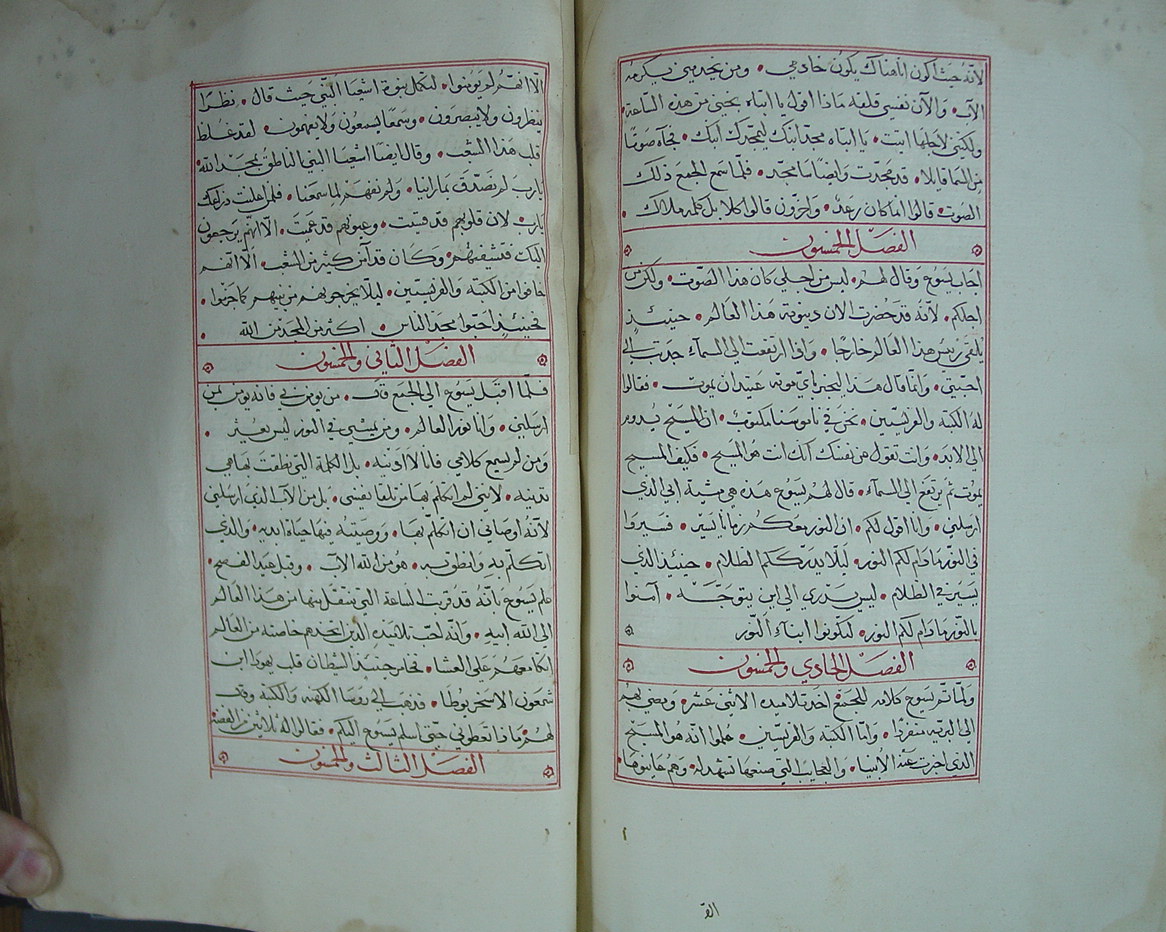 لانه حيث اكون انا هناك يكون خادمي • ومن يخدمني يكرمه
الآب • والآن نفسي قلقه ماذا اقول يا ابتاه نجني من هذه الساعة
ولكنني لاجلها اتيت • يا ابتاه مجد ابنك ليمجدك ابنك • فجآه صوتا
من السما قايلا • قد مجدت وايضا سامجد • فلما سمع الجمع ذلك
الصوت • قالوا انما كان رعد • واخرون قالوا كلا بل كلمه ملاك •
الفصل الخمسون
اجاب يسوع وقال لهم • ليس من اجلي كان هذا الصوت • ولكن من
اجلكم • لانه قد حضرت الان دينونة هذا العالم • حينئذٍ
يلقى رييس هذا العالم خارجا • واذا ارتفعت الى السمآء جدبت الي
احبتي • وانما قال هذا ليخبر اي موته عتيد ان يموت • فقالوا
له الكتبه والفريسين • نحن في ناموسنا مكتوب • ان المسيح يدوم
الى الابد • وانت تقول من نفسك آنك انت هو المسيح • فكيف المسيح
يموت ثم يرتفع الى السمآء • قال لهم يسوع هذه هي مشية ابي الذي
ارسلني • وانا اقول لكم • ان النور معكم زمانا يسير • فسيروا
في النور ما دام لكم النور • ليلا يدرككم الظلام • حينئذ الذي
يسير في الظلام • ليس يدري الى اين يتوجه • آمنوا
بالنور ما دام لكم النور • لتكونوا ابنآء النور
الفصل الحادي والخمسون
ولما تم يسوع كلامه للجمع اخد تلاميده الاثني عشر • ومضى بهم
الى البريه منفردا • واما الكتبه والفريسين • علموا انه هو المسيح
الذي اخبرت عنه الانبيا • والعجايب التي صنعها تشهد له • وهم عاينوها •
الا انهم لم يومنوا • لتكمل نبوة اشعيا النبي حيث قال • نظرا
ينظرون ولا يبصرون • وسمعا يسمعون ولا يفهمون • لقد غلظ
قلب هذا الشعب • وقال ايضا اشعيا النبي الناطق بمجد الله •
يارب لم نصدق بما راينا • ولم نفهم لما سمعنا • فلمن اعلنت دراعك
يارب • لان قلوبهم قد قسيت • وعيونهم قد عميت • الا انهم يرجعون
اليك فتشفيهم • وكان قد آمن كثير من الشعب • الا انهم
خافوا من الكتبه والفريسين • ليلا يخرجوهم من بيتهم
فحينئذ احبوا مجد الناس • اكثر من المجد من الله
الفصل الثاني والخمسون
فلما اقبل يسوع الى الجمع قال • من يومن بي فانه يومن بمن
ارسلني • وانا نور العالم • ومن يمشي في النور ليس يعثر •
ومن لم يسمع كلامي فانا لا ادينه • بل الكلمة التي نطقت بها هي
تدينه • لانني لم اتكلم بها من تلقا نفسي • بل من الآب الذي ارسلني
لآنه اوصاني ان اتكلم بها • ووصيته فيها حياة ابديه • والذي
اتكلم به وانطق به • هو من الله الآب • وقبل عيد الفصح •
علم يسوع بانه قد قربت الساعة التي ينتقل فيها من هذا العالم
الى الله ابيه • وانه احب تلاميده الدين اتخدهم خاصته من العالم
اتكا معهم على العشا • فخامر حينئذ الشيطان قلب يهودا ابن
شمعون الاسخريوطا • فدهب الى روسا الكهنه والكتبه وقال
لهم • ماذا تعطوني حتى اسلم يسوع اليكم • فقالوا له ثلاثين من الفضه
الفصل الثالث والخمسون